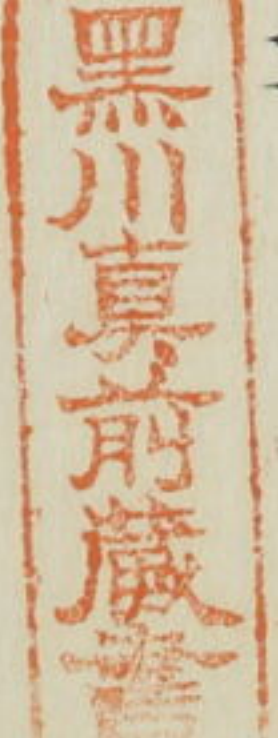 黒川真前蔵書